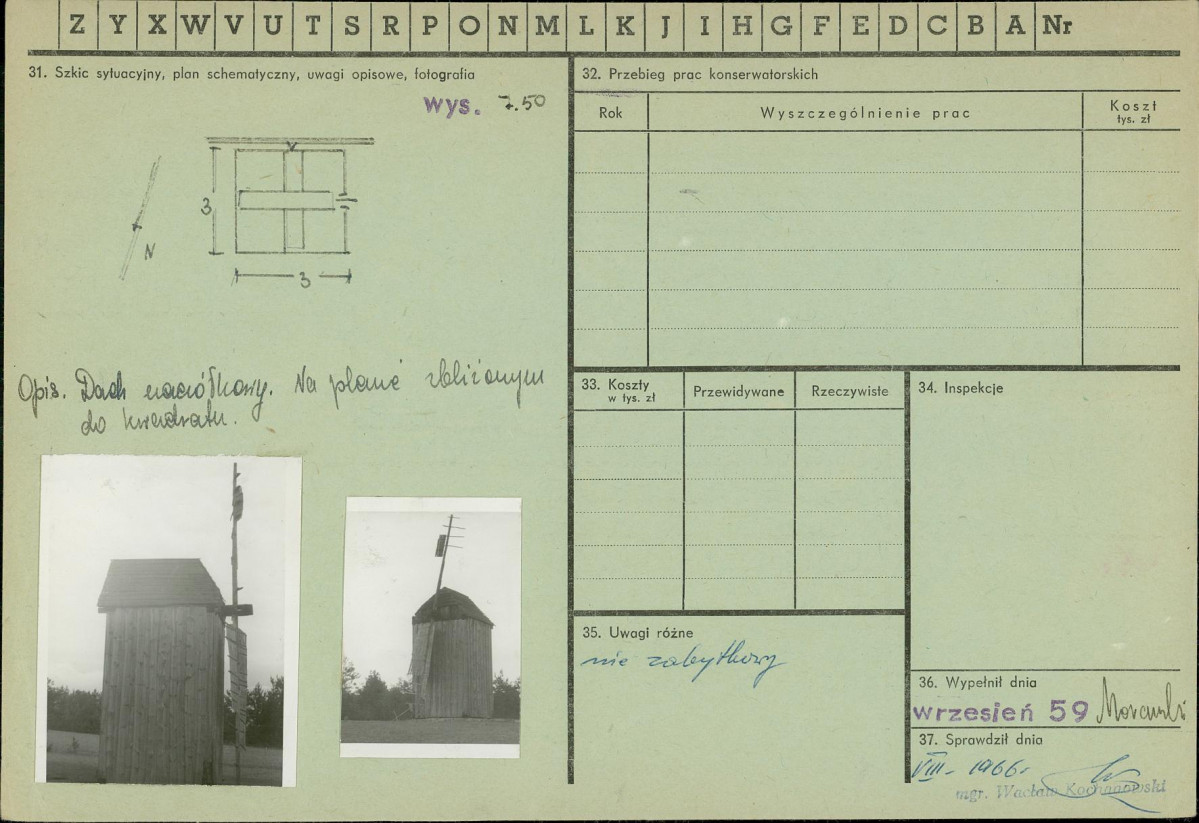 Z Y X W V U T S R P O N M L K J I H G F E D C B A Nr
31. Szkic sytuacyjny, plan schematyczny, uwagi opisowe, fotografia
wys. 7.50
3
N
3
Opis. Dach naciółkowy. Na planie zbliżonym
do kwadratu.
32. Przebieg prac konserwatorskich
Rok
Wyszczególnienie prac
Koszt
tys. zł
33. Koszty
w tys. zł
Przewidywane
Rzeczywiste
34. Inspekcje
35. Uwagi różne
nie zabytkowy
36. Wypełnił dnia
wrzesień 59
37. Sprawdził dnia
VIII - 1966 r
mgr. Wacław Kochanowski